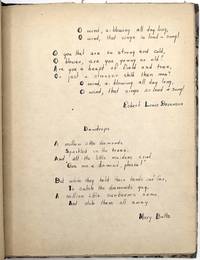 O wind, a-blowing all day long,
O wind, that sings so loud a song!
O you that are so strong and cold,
O blower, are you young or old?
Are you a beast of field and tree,
Or just a stronger child than me?
O wind, a-blowing all day long,
O wind, that sings so loud a song!
Robert Louis Stevenson
Dewdrops
A million little diamonds
Sparkled on the trees.
And all the little maidens said
"Give me a diamond, please!"
But while they held their hands out
To catch the diamonds gay,
A million little sunbeams came,
And stole them all away.
Mary Butts